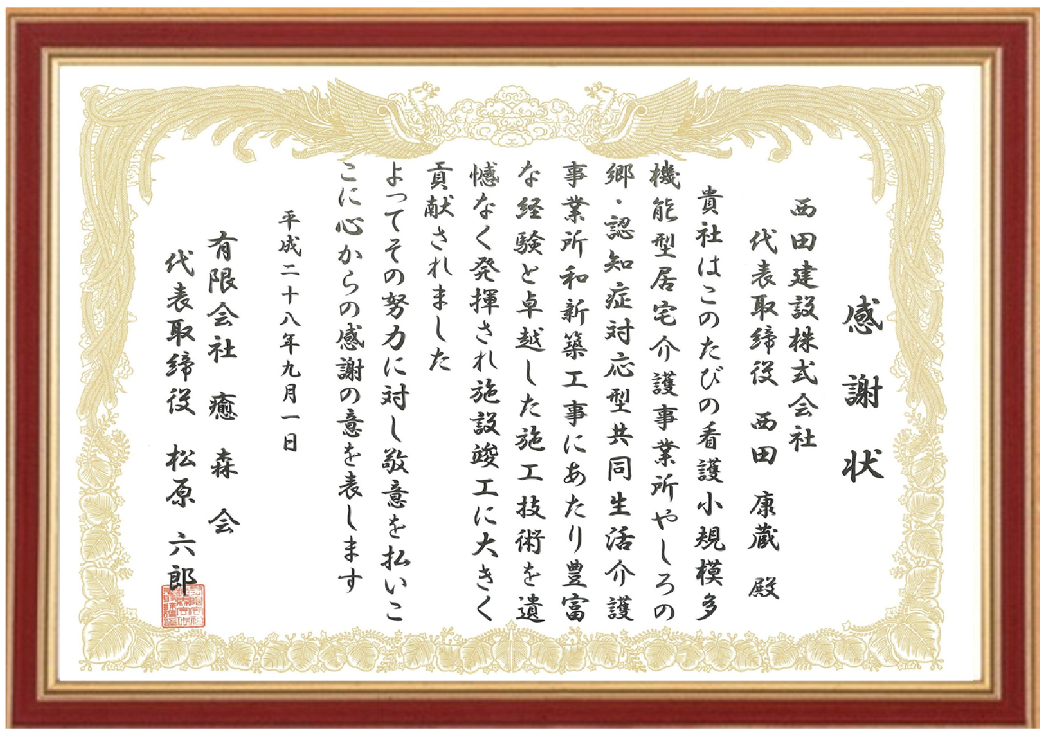 感謝状
西田建設株式会社
代表取締役 西田 康蔵 殿
貴社はこのたびの看護小規模多
機能型居宅介護事業所やしろの
郷・認知症対応型共同生活介護
事業所和新築工事にあたり豊富
な経験と卓越した施工技術を遺
憾なく発揮され施設竣工に大きく
貢献されました
よってその努力に対し敬意を払いこ
こに心からの感謝の意を表します
平成二十八年九月一日
有限会社 癒 森 会
代表取締役 松原 六郎